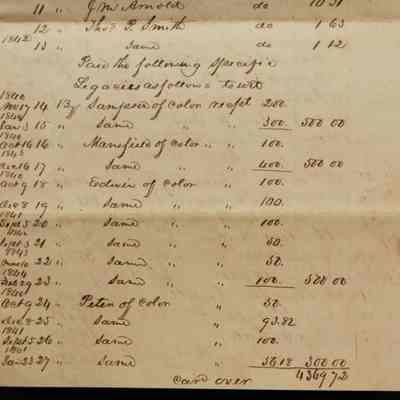 11 " J. M. Arnold do 10 31
12 " Thos P. Smith do 1 63
1842
13 " Same do 1 12
Paid the following specific
Legacies as follows to wit
1840
14 By Sampson of Color recpt 200.
15 " Same " " 300. 500 00
1840
Oct 16 16 " Mansfield of Color " " 100.
16 17 " Same " " 400. 500 00
1840
Oct 9 18 " of Color " 100.
Dec 8 19 " Same " " 100.
1841
Sept 5 20 " Same " " 100.
Sept 3 21 " Same " " 50.
1843
22 " Same " " 50.
1844
23 " Same " " 100. 500 00
1840
Oct 9 24 " Peter of Color " 50.
Dec 8 25 " Same " 93.82
1841
Sept 5 26 " Same " 100.
Jan 23 27 " Same " 56 18 300 00
Card over 4369 72